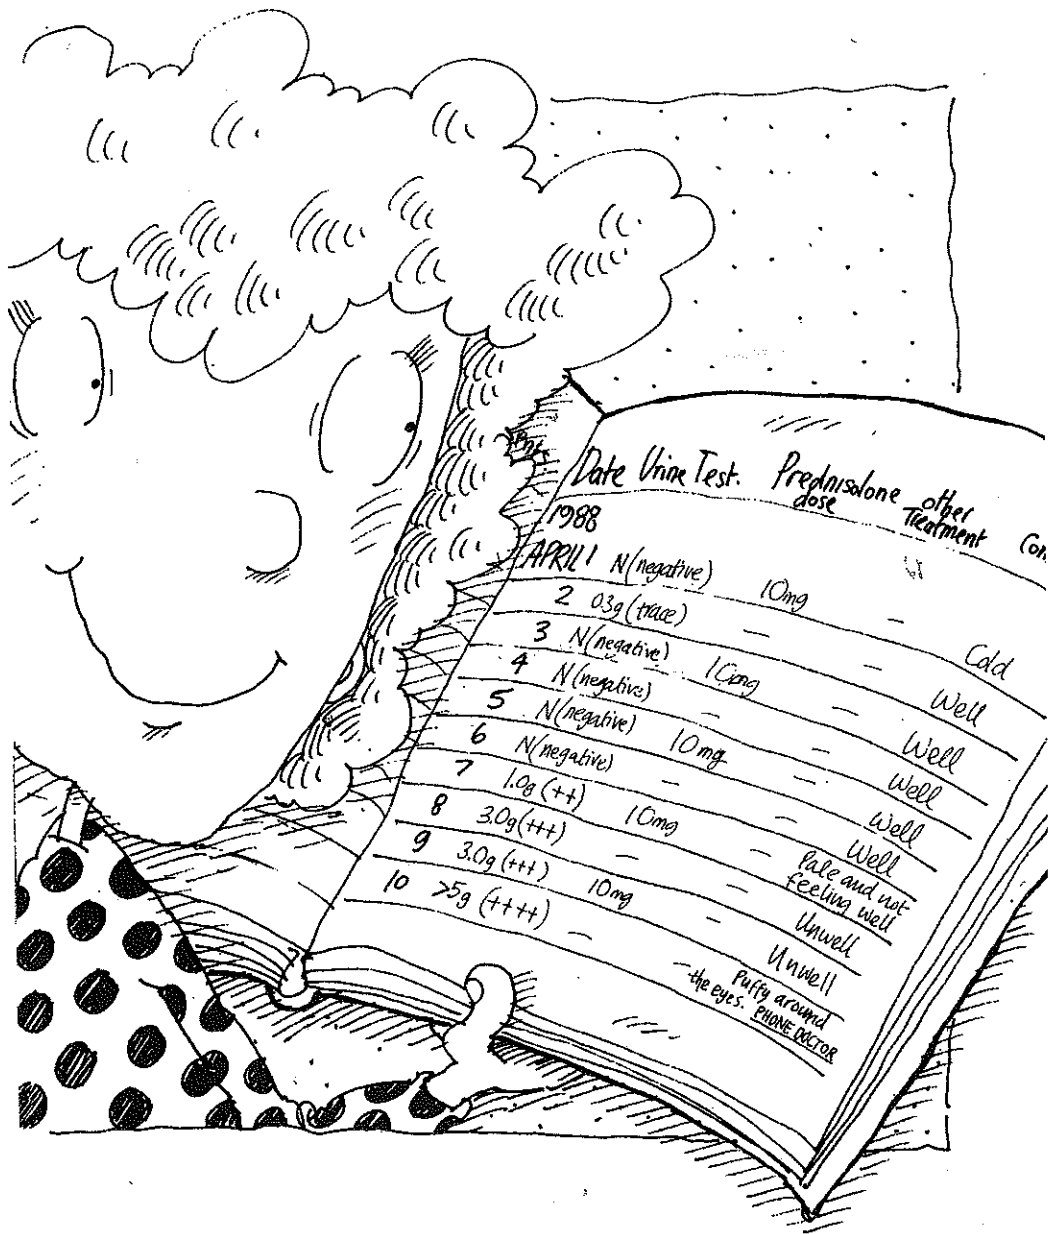 Date Urine Test. Prednisolone dose other Treatment
1988
APRIL 1 N(negative) 10mg — Cold
2 0.3g (trace) — — Well
3 N(negative) 10mg — Well
4 N(negative) — — Well
5 N(negative) 10mg — Well
6 N(negative) — — Well
7 1.0g (++) 10mg — Pale and not
feeling well
8 3.0g (+++) — — Unwell
9 3.0g (+++) 10mg — Unwell
10 >5g (++++) — — Puffy around
the eyes. PHONE DOCTOR